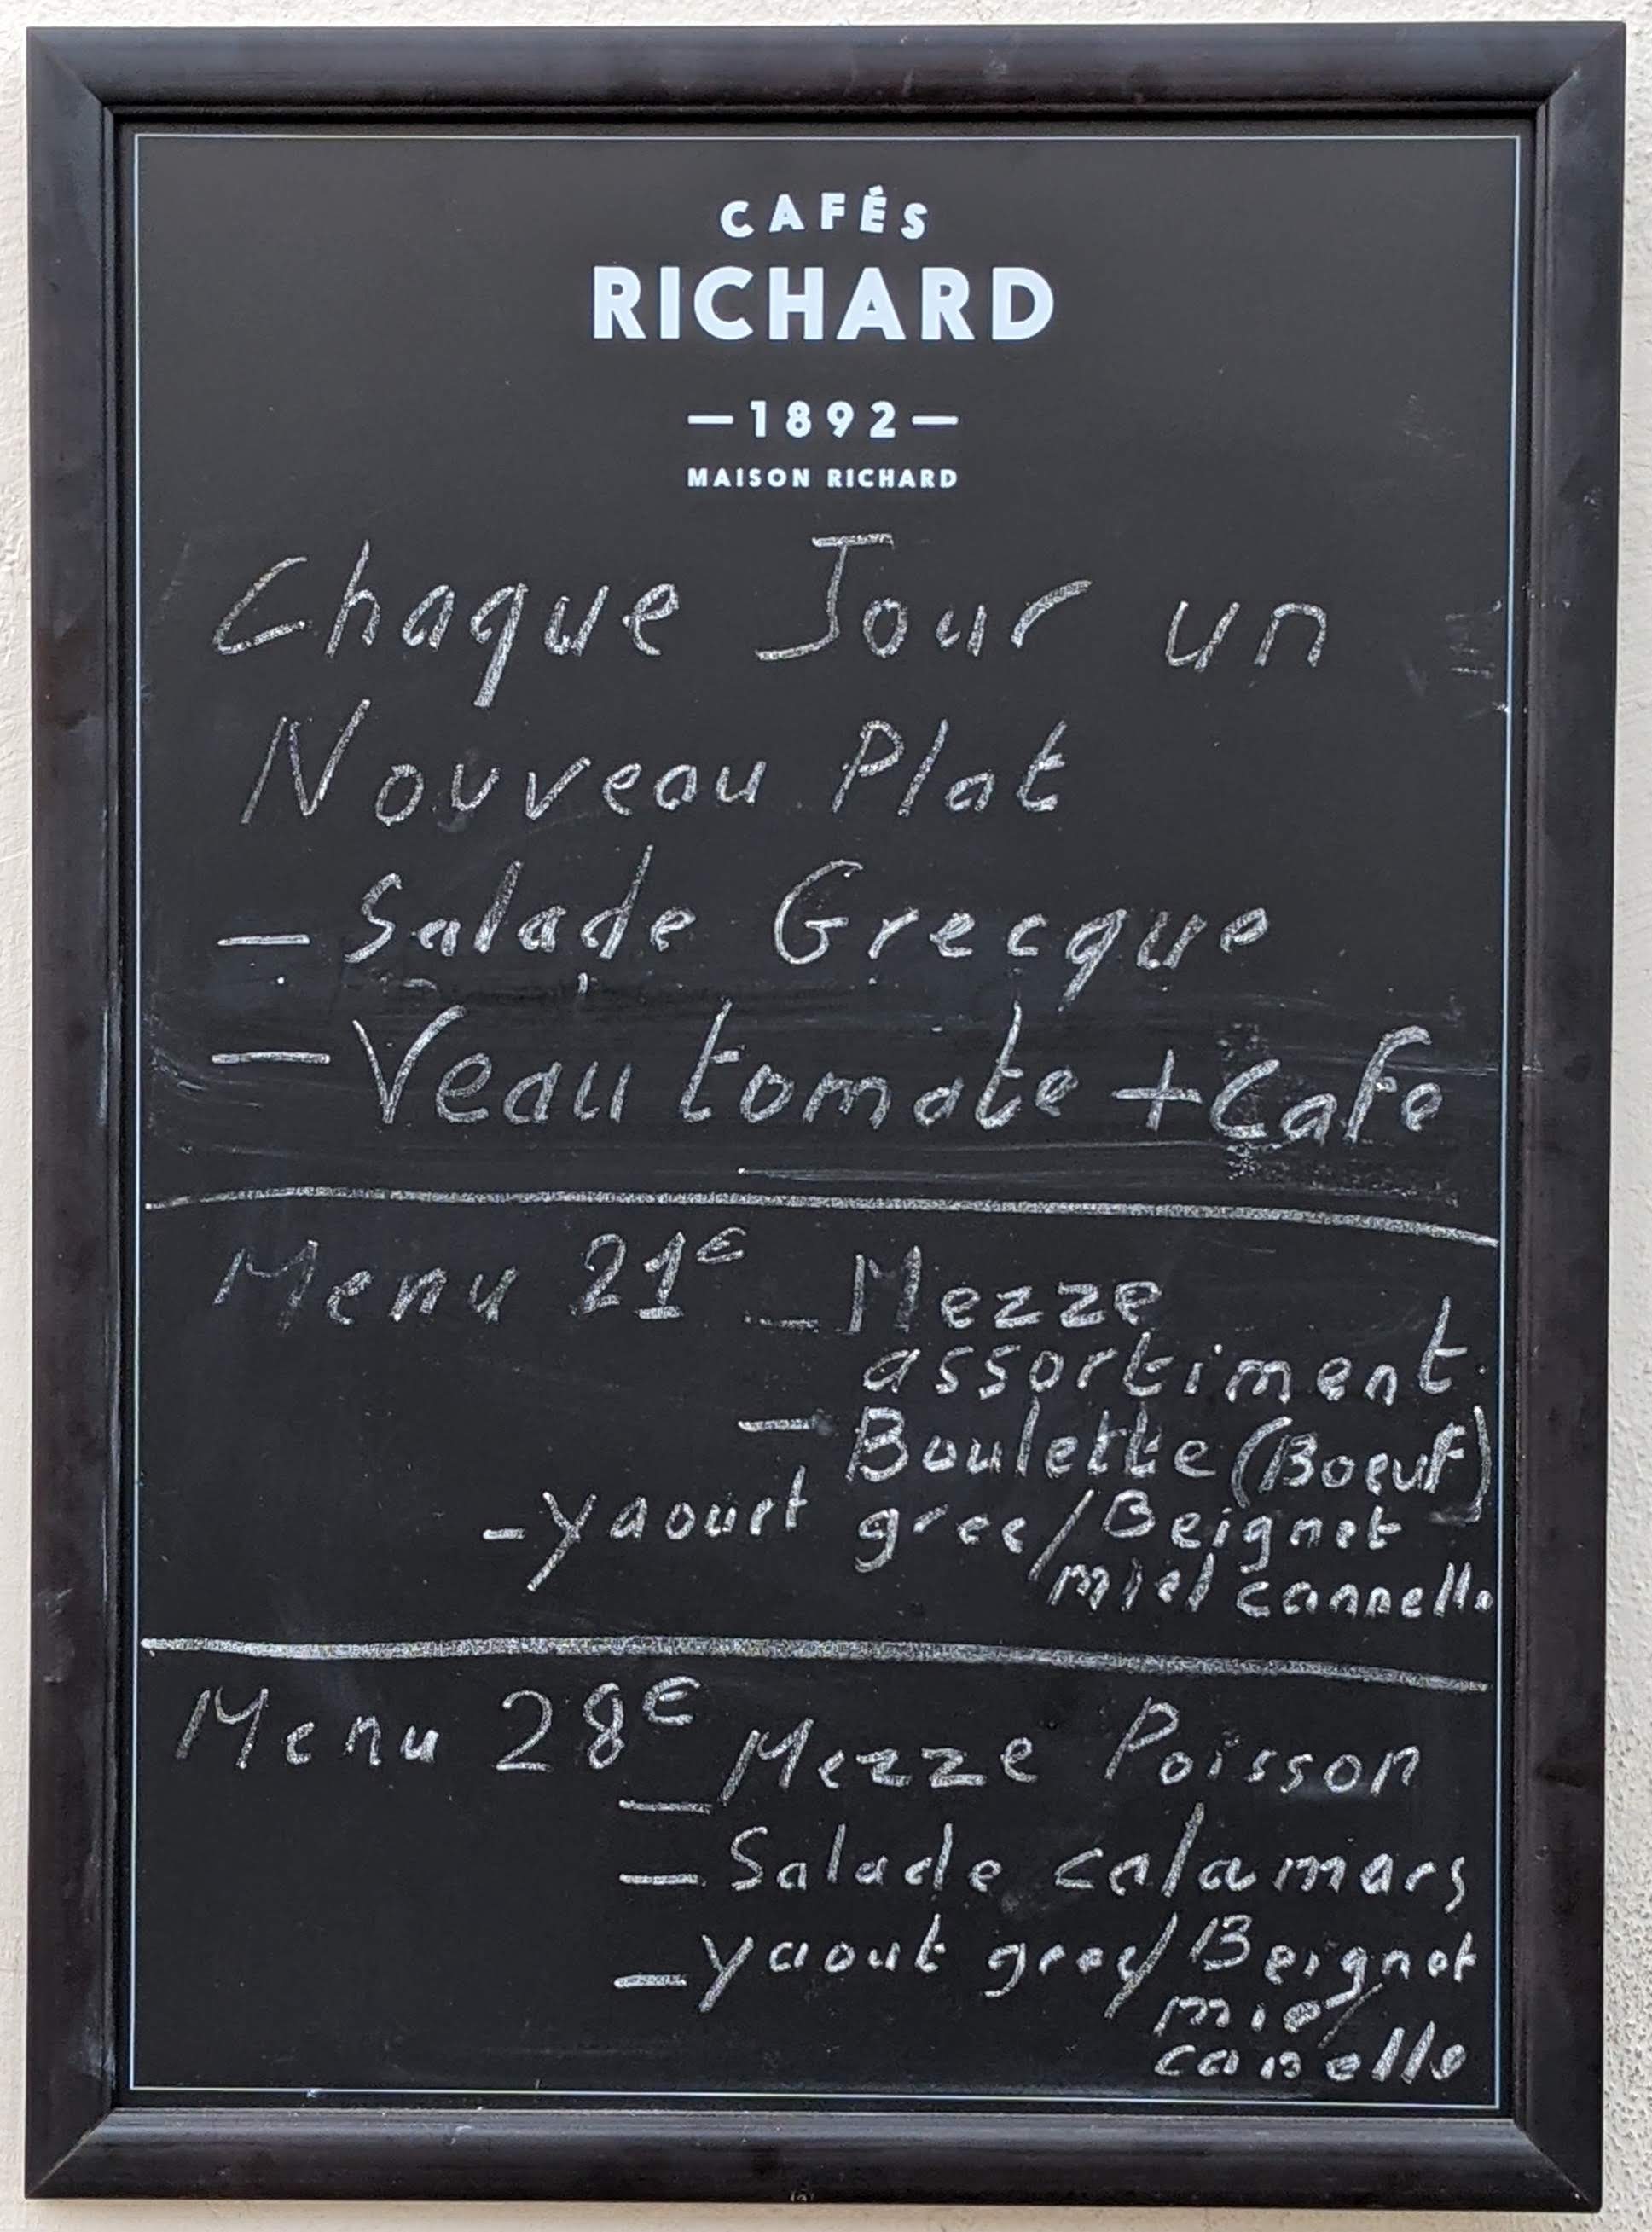 CAFÉS
RICHARD
—1892—
MAISON RICHARD
Chaque Jour un
Nouveau Plat
— Salade Grecque
— Veau tomate + Cafe
Menu 21€ — Mezze
assortiment.
— Boulette (Boeuf)
- yaourt grec/Beignet
miel cannelle
Menu 28€
— Mezze Poisson
— Salade calamars
— yaout grec/Beignet
miel
canelle